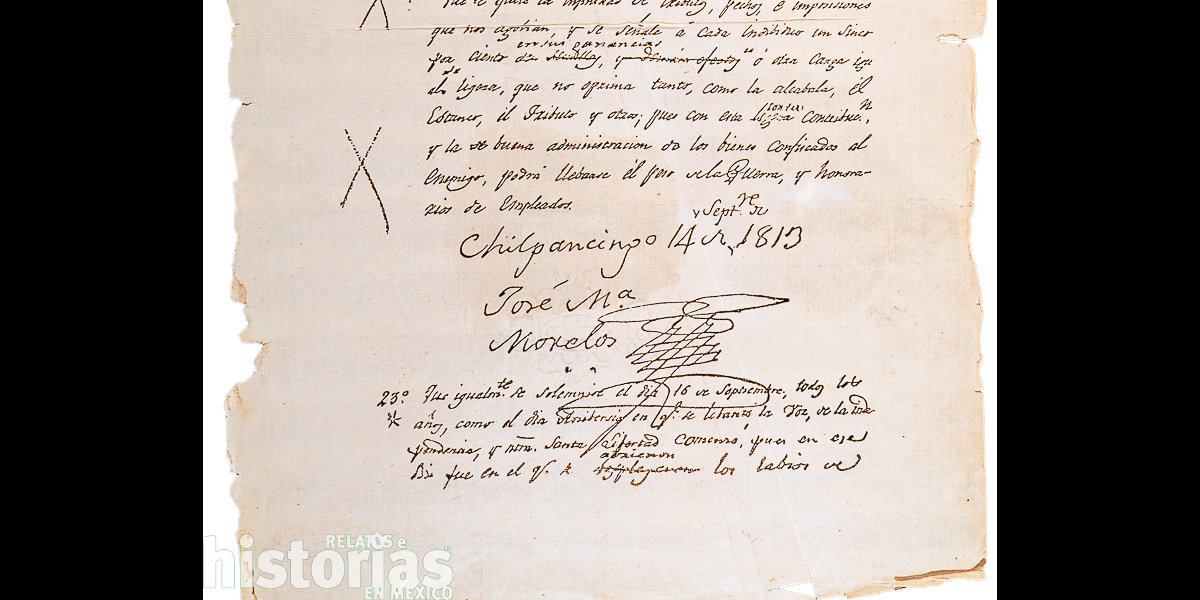 Que se quite la infinidad de tributos, pechos, é imposiciones
que nos agobian, y se señale á cada individuo un sinco
en sus ganancias
por ciento de semillas, y demas efectos ó otra carga igu
al ligera, que no oprima tanto, como la alcabala, él
Estanco, él Tributo y otros; pues con esta ligera contribuc.n,
corta
y la buena administracion de los bienes confiscados al
Enemigo, podrá llebarse él peso de la Guerra, y honora-
rios de Empleados.
Sept.re de
Chilpancingo 14 de 1813
José M.a
Morelos
23.o Que igualm.te se solemnise el dia 16 de Septiembre, todos los
años, como el dia Anibersario en q.e se lebantó la Voz, de la inde
pendencia, y ntra. Santa Libertad comensó, pues en ese
abrieron
Dia fue en el q.e se desplegaron los labios de
RELATOS e
historias
EN MÉXICO